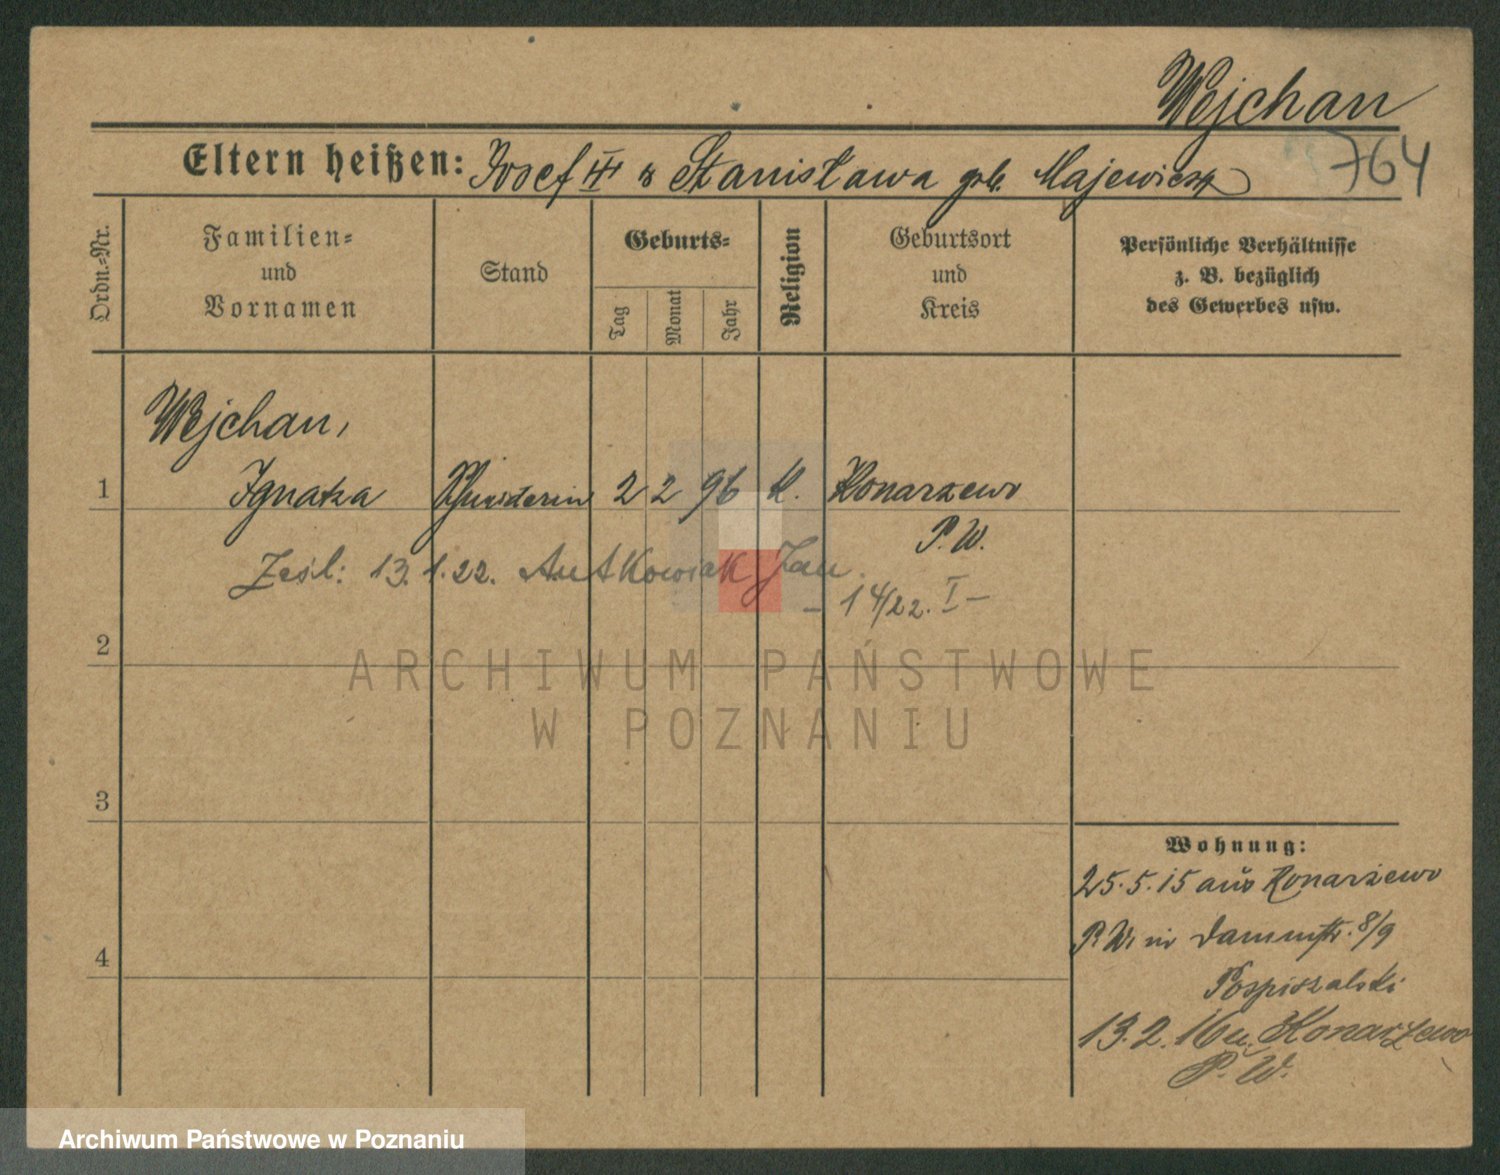 Wejchan
764
Eltern heißen: Josef III & Stanisława geb. Majewicz
Ordn.-Nr.
Familien-
und
Vornamen
Stand
Geburts-
Tag
Monat
Jahr
Religion
Geburtsort
und
Kreis
Persönliche Verhältnisse
z. B. bezüglich
des Gewerbes usw.
Wejchan,
1 Ignatza 2 2 96 K. Konarzewo
P. W.
Zaśl: 13.1.22. Antkowiak Jan
– 14/22. I –
2
3
4
Wohnung:
25.5.15 aus Konarzewo
P. W. in Dammstr. 8/9
Pospiszalski
13.2.16 n. Konarzewo
P. W.
ARCHIWUM PAŃSTWOWE
W POZNANIU
Archiwum Państwowe w Poznaniu